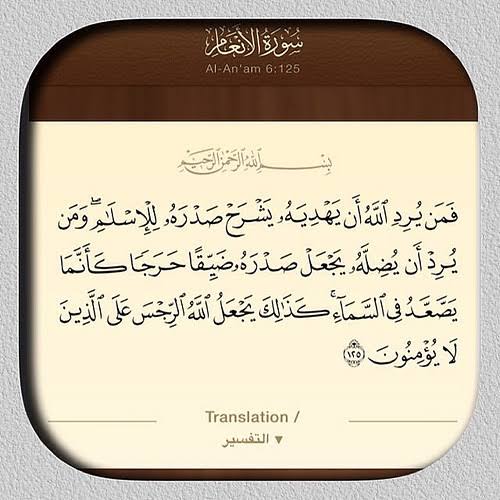 سُورَةُ الأَنْعَامِ
Al-An'am 6:125
بِسْمِ اللَّهِ الرَّحْمَٰنِ الرَّحِيمِ
فَمَن يُرِدِ ٱللَّهُ أَن يَهْدِيَهُۥ يَشْرَحْ صَدْرَهُۥ لِلْإِسْلَٰمِ ۖ وَمَن
يُرِدْ أَن يُضِلَّهُۥ يَجْعَلْ صَدْرَهُۥ ضَيِّقًا حَرَجًا كَأَنَّمَا
يَصَّعَّدُ فِى ٱلسَّمَآءِ ۚ كَذَٰلِكَ يَجْعَلُ ٱللَّهُ ٱلرِّجْسَ عَلَى ٱلَّذِينَ
لَا يُؤْمِنُونَ ١٢٥
Translation /
التفسير ▼